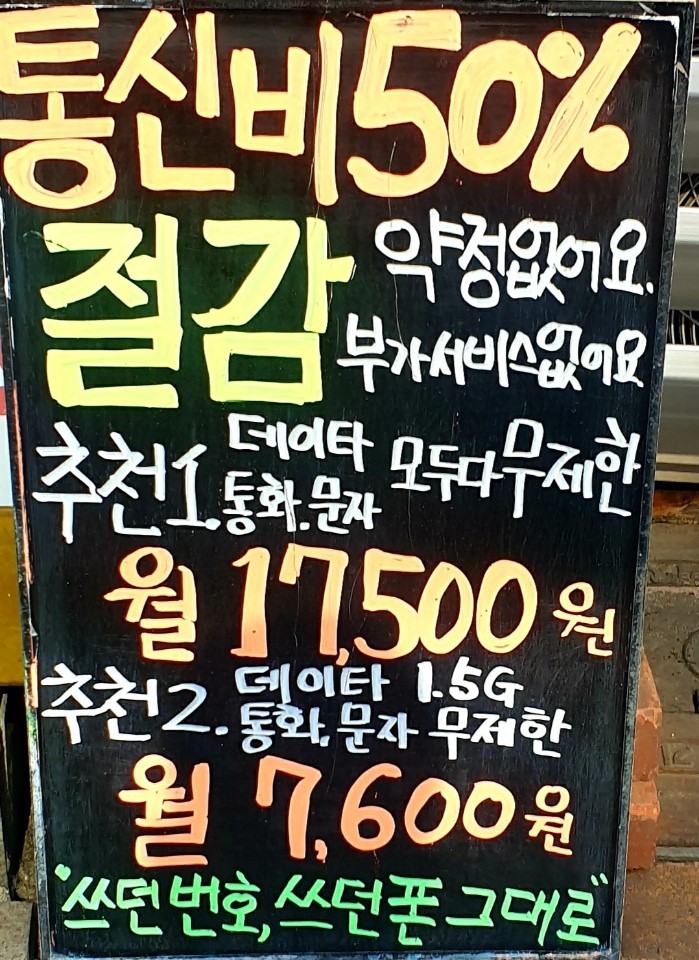 통신비50%
절감 약정없어요.
부가서비스없어요
추천1. 데이타 모두다무제한
통화.문자
월 17,500원
추천2. 데이타 1.5G
통화.문자 무제한
월 7,600원
"쓰던번호,쓰던폰그대로"